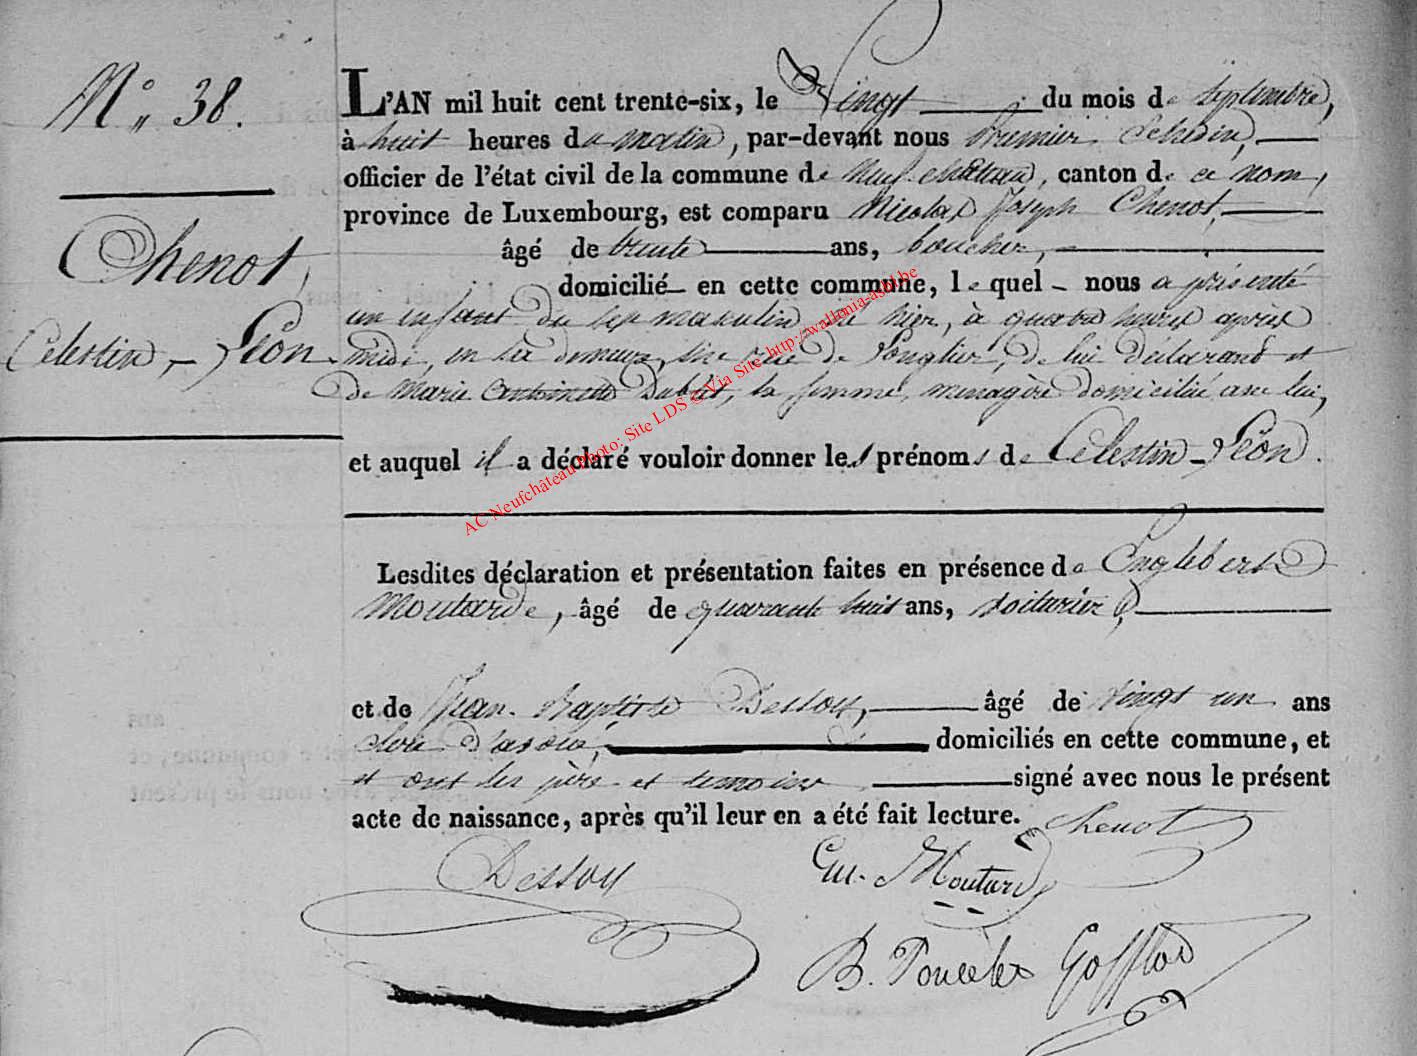 N° 38.
Chenot,
Celestin - Léon.
L'AN mil huit cent trente-six, le Vingt du mois de septembre,
à huit heures du matin, par-devant nous Premier Echevin,
officier de l'état civil de la commune de Neufchâteau, canton de ce nom,
province de Luxembourg, est comparu Nicolas Joseph Chenot,
âgé de trente ans, boucher,
domicilié en cette commune, lequel nous a présenté
un enfant du sexe masculin né hier, à quatre heures après
midi, en sa demeure, sise rue de Longlier, de lui déclarant et
de Marie Antoinette, sa femme, menagère domiciliée avec lui,
et auquel il a déclaré vouloir donner les prénoms de Celestin - Léon.
AC Neufchâteau Photo: Site LDS © Via Site http://wallonia-asbl.be
Lesdites déclaration et présentation faites en présence de Englebert
Moutarde, âgé de quarante huit ans, voiturier,
et de Jean-Baptiste Dessoy, âgé de vingt un ans
clerc d'avoué, domiciliés en cette commune, et
et ont les père et temoins signé avec nous le présent
acte de naissance, après qu'il leur en a été fait lecture.
Chenot
Dessoy
Moutarde
B. Poncelet Gofflot